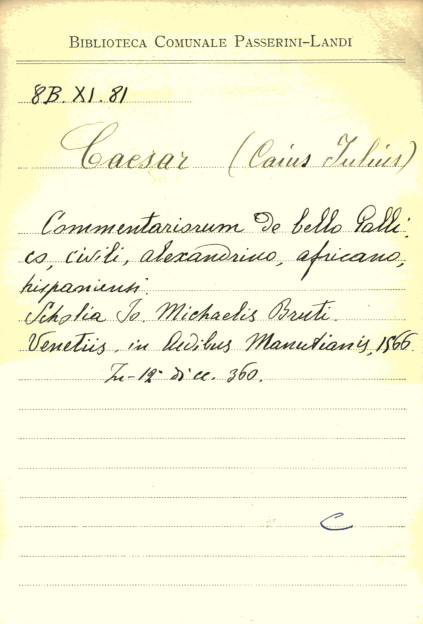 BIBLIOTECA COMUNALE PASSERINI-LANDI
8B. XI. 81
Caesar (Caius Iulius)
Commentariorum de bello Galli,
co, civili, alexandrino, africano,
hispaniensi.
Scholia Jo. Michaelis Bruti.
Venetiis, in Aedibus Manutianis, 1566.
In-12° di cc. 360.
C